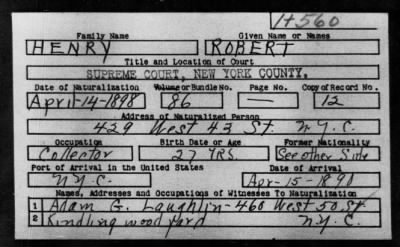 H560
Family Name Given Name or Names
HENRY ROBERT
Title and Location of Court
SUPREME COURT, NEW YORK COUNTY.
Date of Naturalization Volume or Bundle No. Page No. Copy of Record No.
April-14-1898 86 — 12
Address of Naturalized Person
429 West 43 St. N.Y.C.
Occupation Birth Date or Age Former Nationality
Collector 27 YRS. See other Side
Port of Arrival in the United States Date of Arrival
N.Y.C. Apr-15-
Names, Addresses and Occupations of Witnesses To Naturalization
1 Adam G. Laughlin-460 West 50 St
2 Kindling wood yard N.Y.C.